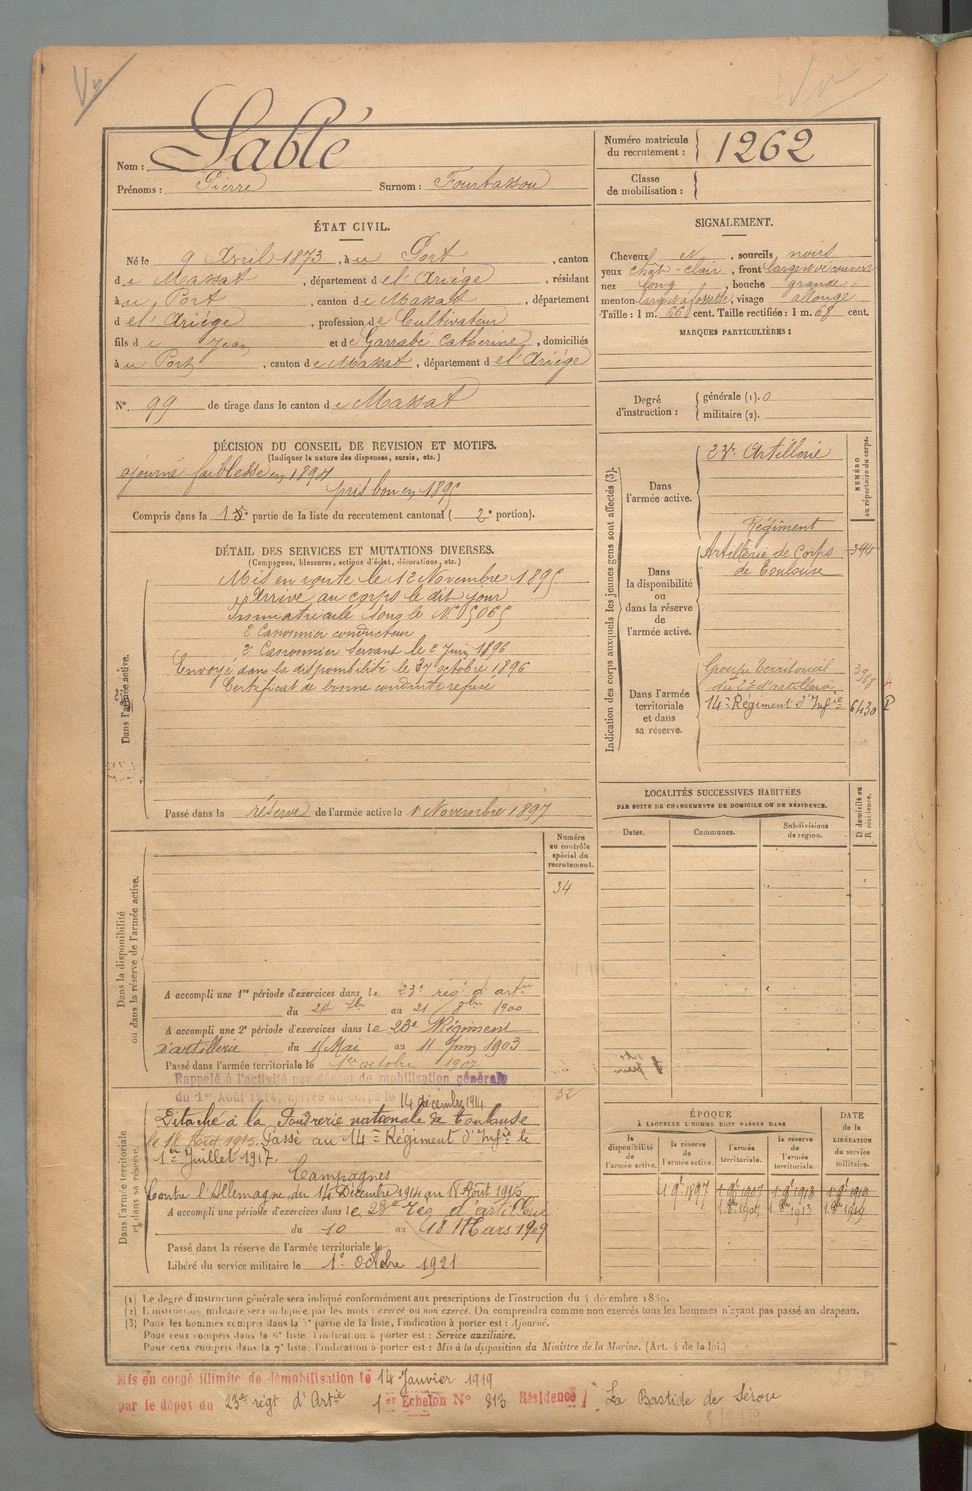 Nom : Sablé
Prénoms : Pierre Surnom : Fourtassou
Numéro matricule du recrutement : 1262
Classe de mobilisation :
ÉTAT CIVIL.
Né le 9 Avril 1873, à u Port, canton
d e Massat, département d e l'Ariége, résidant
à u Port, canton d e Massat, département
d e l'Ariége, profession d e Cultivateur
fils d e Jean et d e Garrabé Catherine, domiciliés
à u Port, canton d e Massat, département d e l'Ariége
N° 99 de tirage dans le canton d e Massat
SIGNALEMENT.
Cheveux N, sourcils noirs
yeux chât-clair, front large
nez long, bouche grande
menton large à fossette, visage allongé
Taille : 1 m. 66 cent. Taille rectifiée : 1 m. 68 cent.
MARQUES PARTICULIÈRES :
Degré d'instruction : générale (1). 0
militaire (2).
DÉCISION DU CONSEIL DE REVISION ET MOTIFS.
(Indiquer la nature des dispenses, sursis, etc.)
ajourné faiblesse en 1894
pris bon en 1895
Compris dans la 1re partie de la liste du recrutement cantonal ( 2e portion).
DÉTAIL DES SERVICES ET MUTATIONS DIVERSES.
(Campagnes, blessures, actions d'éclat, décorations, etc.)
Dans l'armée active.
Mis en route le 12 Novembre 1895
Arrivé au corps le dit jour
Immatriculé sous le N° 5065
2e Canonnier conducteur
2e Canonnier servant le 2 Juin 1896
Envoyé dans la disponibilité le 31 octobre 1896
Certificat de bonne conduite refusé
Passé dans la réserve de l'armée active le 1 Novembre 1897
Indication des corps auxquels les jeunes gens sont affectés (3).
NUMÉRO au répertoire du corps.
Dans l'armée active.
23e Artillerie
Dans la disponibilité ou dans la réserve de l'armée active.
Régiment
Artillerie de Corps 394
de Toulouse
Dans l'armée territoriale et dans sa réserve.
Groupe territorial
du 23 d'artillerie
14e Régiment d'Infie 6430 P
LOCALITÉS SUCCESSIVES HABITÉES
PAR SUITE DE CHANGEMENTS DE DOMICILE OU DE RÉSIDENCE.
Dates. Communes. Subdivisions de région. D. domicile ou R. résidence.
Dans la disponibilité ou dans la réserve de l'armée active.
Numéro au contrôle spécial du recrutement.
34
A accompli une 1re période d'exercices dans le 23e rég. d'artie
du 24 7bre au 21 8bre 1900
A accompli une 2e période d'exercices dans le 23e Régiment
d'artillerie du 15 Mai au 11 Juin 1903
Passé dans l'armée territoriale le 1er octobre 1907
Rappelé à l'activité par décret de mobilisation générale
du 1er Août 1914, arrivé au corps le 14 décembre 1914
32
Dans l'armée territoriale et dans sa réserve.
Détaché à la Fonderie nationale de Toulouse
le 18 Août 1915. Passé au 14e Régiment d'Infie le
1er Juillet 1917.
Campagnes
Contre l'Allemagne, du 14 Décembre 1914 au 18 Août 1915
A accompli une période d'exercices dans le 23e rég. d'artillerie
du 10 au 18 Mars 1909
Passé dans la réserve de l'armée territoriale le
Libéré du service militaire le 1er Octobre 1921
ÉPOQUE
À LAQUELLE L'HOMME DOIT PASSER DANS
la disponibilité de l'armée active. la réserve de l'armée active. l'armée territoriale. la réserve de l'armée territoriale. DATE de la LIBÉRATION du service militaire.
1 9e 1897 1 9e 1907 1 9e 1913 1 9e 1919
1 8bre 1907 1 8bre 1913 1 8bre 1919
(1) Le degré d'instruction générale sera indiqué conformément aux prescriptions de l'instruction du 4 décembre 1889.
(2) L'instruction militaire sera indiquée par les mots : exercé ou non exercé. On comprendra comme non exercés tous les hommes n'ayant pas passé au drapeau.
(3) Pour les hommes compris dans la 5e partie de la liste, l'indication à porter est : Ajourné.
Pour ceux compris dans la 6e liste, l'indication à porter est : Service auxiliaire.
Pour ceux compris dans la 7e liste, l'indication à porter est : Mis à la disposition du Ministre de la Marine. (Art. 4 de la loi.)
Mis en congé illimité de démobilisation le 14 Janvier 1919
par le dépôt du 23e régt d'Artie 1er Echelon N° 813 Résidence La Bastide de Sérou